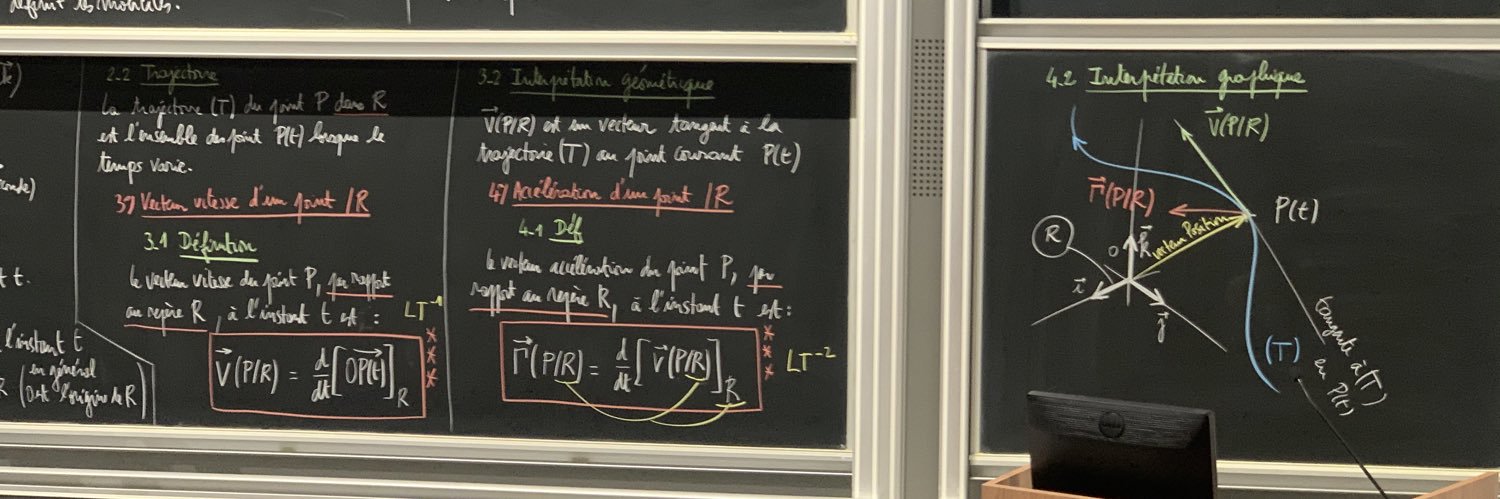 définit les mobiles.
k)
conde)
t t.
l'instant t
R (en général
O est l'origine de R)
2-2 Trajectoire
La trajectoire (T) du point P dans R
est l'ensemble des point P(t) lorsque le
temps varie.
3) Vecteur vitesse d'un point /R
3.1 Définition
le vecteur vitesse du point P, par rapport
au repère R, à l'instant t est :
LT⁻¹
V⃗(P/R) = d/dt [OP(t)]_R
***
3-2 Interprétation géométrique
V⃗(P/R) est un vecteur tangent à la
trajectoire (T) au point courant P(t)
4) Accélération d'un point /R
4.1 Déf
le vecteur accélération du point P, par
rapport au repère R, à l'instant t est :
Γ⃗(P/R) = d/dt [V⃗(P/R)]_R
***
LT⁻²
4.2 Interprétation graphique
V⃗(P/R)
Γ⃗(P/R)
P(t)
R
vecteur Position
O
k⃗
i⃗
j⃗
(T)
tangente à (T)
en P(t)
DELL